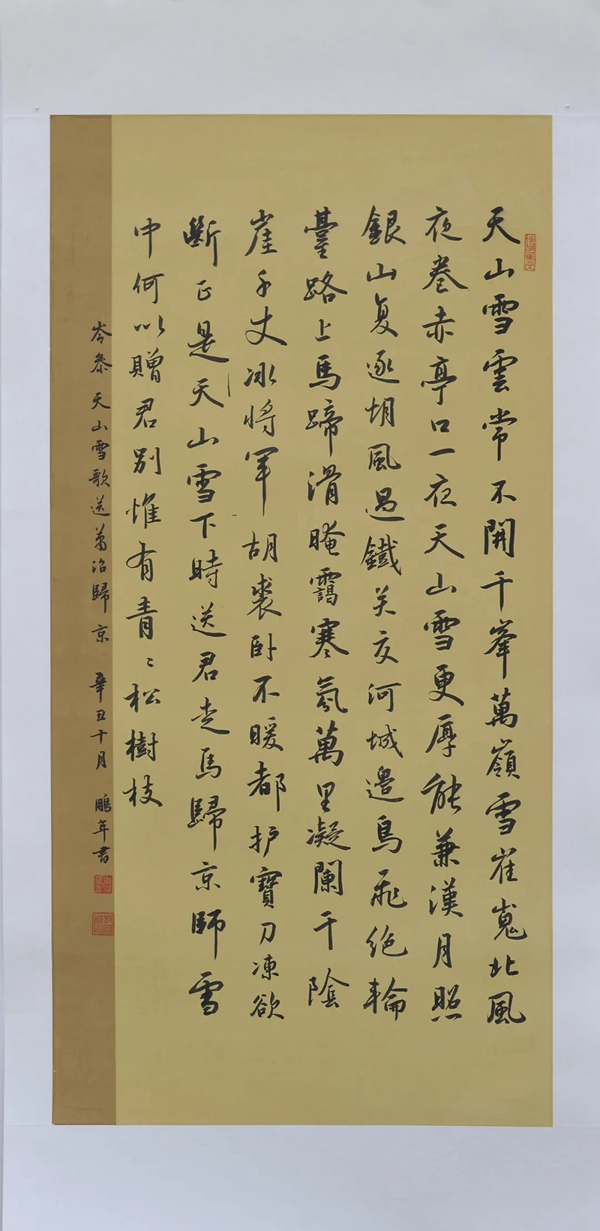 天山雪雲常不開千峯萬嶺雪崔嵬北風
夜卷赤亭口一夜天山雪更厚能兼漢月照
銀山复逐胡風過鐵关交河城邊鳥飛絕輪
臺路上馬蹄滑晻靄寒氛萬里凝闌干陰
崖千丈冰將軍胡裘卧不暖都护寶刀凍欲
斷正是天山雪下時送君走馬歸京師雪
中何以贈君別惟有青〻松樹枝
岑參 天山雪歌送萧治歸京 辛丑十月 鵬年書